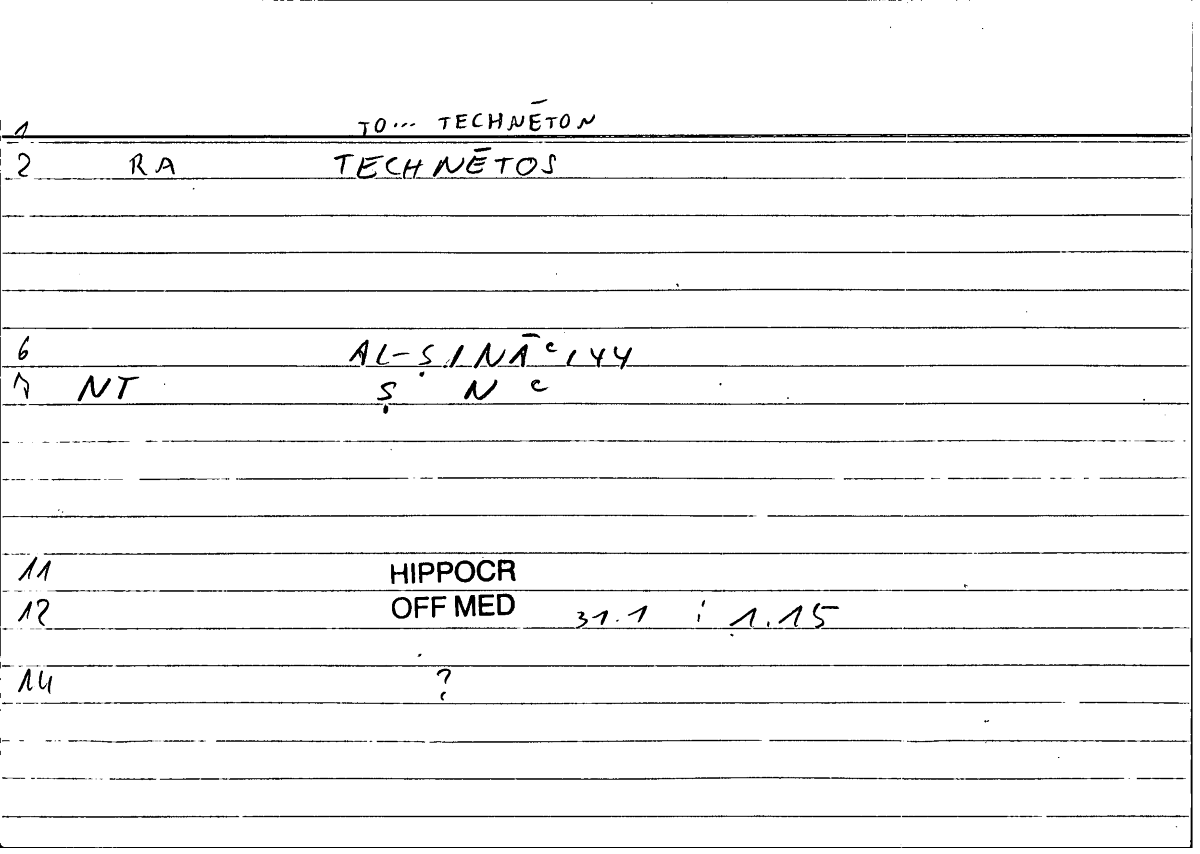 1 TO... TECHNĒTON
2 RA TECHNĒTOS
6 AL-ṢINĀʿIYY
7 NT Ṣ N ʿ
11 HIPPOCR
12 OFF MED 31.1 ; 1.15
14 ?